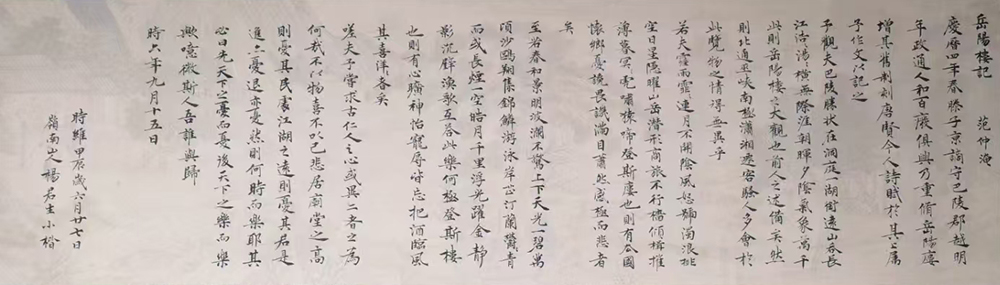 岳陽樓記 范仲淹
慶曆四年春滕子京謫守巴陵郡越明
年政通人和百廢俱興乃重脩岳陽樓
增其舊制刻唐賢今人詩賦於其上屬
予作文以記之
予觀夫巴陵勝狀在洞庭一湖銜遠山吞長
江浩々湯々橫無際涯朝暉夕陰氣象萬千
此則岳陽樓之大觀也前人之述備矣然
則北通巫峽南極瀟湘遷客騷人多會於
此覽物之情得無異乎
若夫霪雨霏々連月不開陰風怒號濁浪排
空日星隱曜山岳潛形商旅不行檣傾楫摧
薄暮冥々虎嘯猿啼登斯樓也則有去國
懷鄉憂讒畏譏滿目蕭然感極而悲者
矣
至若春和景明波瀾不驚上下天光一碧萬
頃沙鷗翔集錦鱗游泳岸芷汀蘭郁々青々
而或長煙一空皓月千里浮光躍金靜
影沉璧漁歌互答此樂何極登斯樓
也則有心曠神怡寵辱皆忘把酒臨風
其喜洋々者矣
嗟夫予嘗求古仁人之心或異二者之為
何哉不以物喜不以己悲居廟堂之高
則憂其民處江湖之遠則憂其君是
進亦憂退亦憂然則何時而樂耶其
必曰先天下之憂而憂後天下之樂而樂
歟噫微斯人吾誰與歸
時六年九月十五日
時維甲辰歲六月廿七日
嶺南山人楊君生小楷